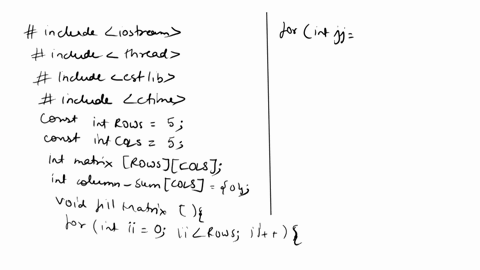 # include <iostream>
# include < thread>
# Include <cstlib>
# include <ctime>
Const int ROWS = 5;
const int COLS = 5;
int matrix [ROWS][COLS];
int column-sum[COLS] = {0};
void fill Matrix () {
for (int ii = 0; ii < ROWS; ii++) {
for (int jj =